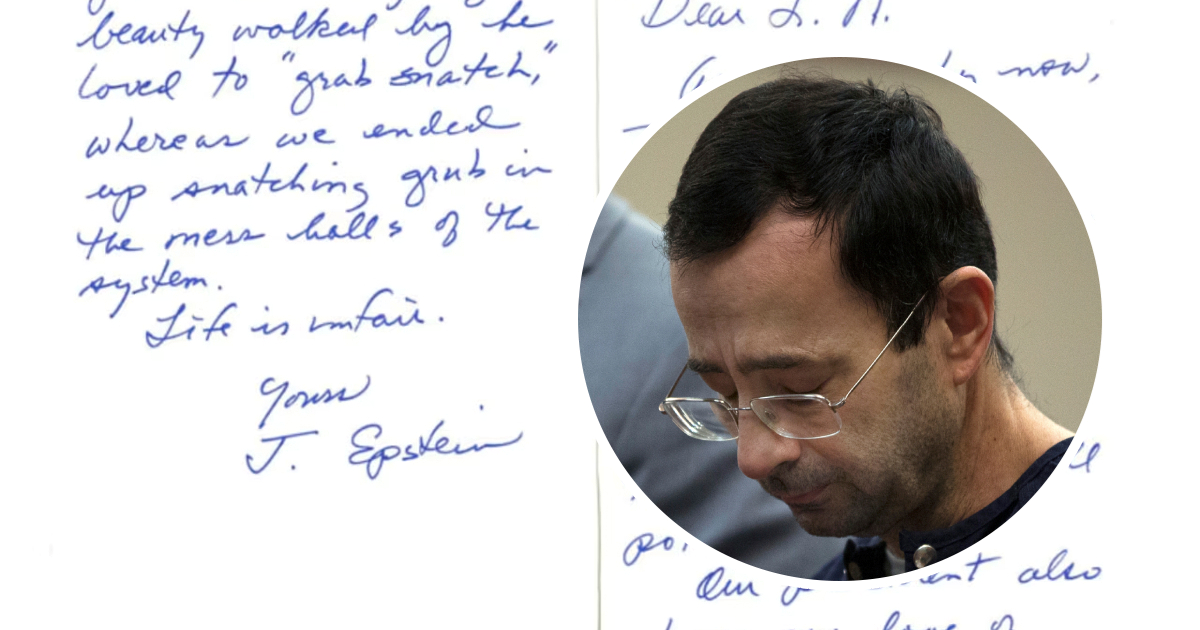 beauty walked by he
loved to "grab snatch,"
whereas we ended
up snatching grub in
the mess halls of the
system.
Life is unfair.
Yours
J. Epstein
Dear L. N.
now,
so,
Our also